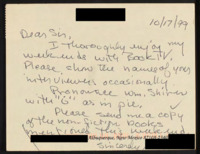 10/17/99
Dear Sirs,
I thoroughly enjoy my
weekends with Book TV.
Please show the name of your
interviewers occasionally
Pronounce Wm. Shirer
with "G" as in pie.
Please send me a copy
of the non-fiction books
mentioned this weekend.
Sincerely
Albuquerque, New Mexico